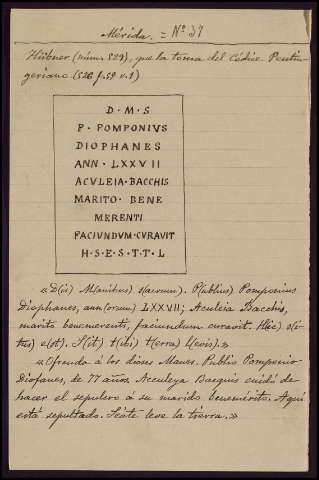 Mérida. = Nº 37
Hübner (núm. 529), que la toma del Códice Peutin-
geriano (526 f. 59 v. 1)
D · M · S
P · POMPONIVS
DIOPHANES
ANN · LXXVII
ACVLEIA · BACCHIS
MARITO · BENE
MERENTI
FACIUNDUM · CURAVIT
H · S · E · S · T · T · L
«D(is) M(anibus) s(acrum). P(ublius) Pomponius
Diophanes, ann(orum) LXXVII; Aculeia Bacchis,
marito benemerenti, faciundum curavit. H(ic) s(i-
tus) e(st). S(it) t(ibi) t(erra) l(evis).»
«Ofrenda á los dioses Manes. Publio Pomponio
Diofanes, de 77 años. Acculeya Bacquis cuidó de
hacer el sepulcro á su marido benemérito. Aquí
está sepultado. Séate leve la tierra.»